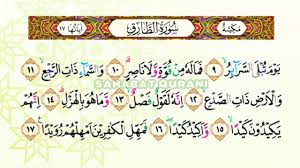 مكية سورة الطارق آياتها ١٧
يَوْمَ تُبْلَى السَّرَآئِرُ ٩ فَمَا لَهُ مِنْ قُوَّةٍ وَّلَا نَاصِرٍ ١٠ وَالسَّمَآءِ ذَاتِ الرَّجْعِ ١١
SAHABAT QURANI
وَالْأَرْضِ ذَاتِ الصَّدْعِ ١٢ إِنَّهُ لَقَوْلٌ فَصْلٌ ١٣ وَّمَا هُوَ بِالْهَزْلِ ١٤ إِنَّهُمْ
يَكِيْدُوْنَ كَيْدًا ١٥ وَّأَكِيْدُ كَيْدًا ١٦ فَمَهِّلِ الْكٰفِرِيْنَ أَمْهِلْهُمْ رُوَيْدًا ١٧